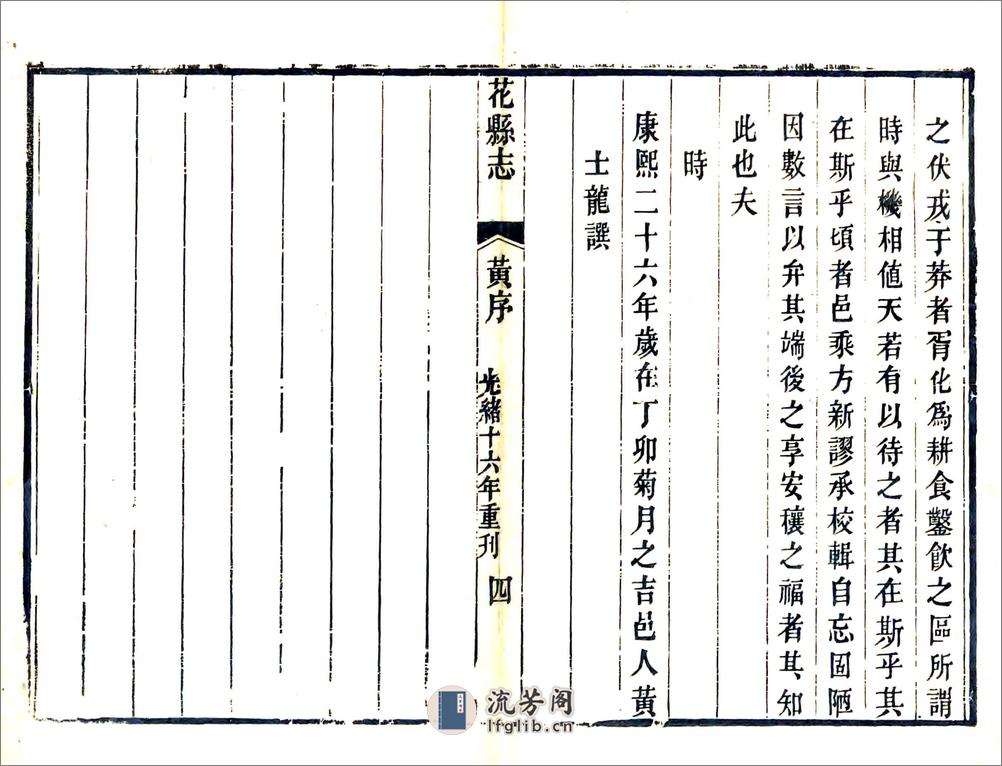 之伏戎于莽者胥化爲耕食鑿飮之區所謂
時與機相値天若有以待之者其在斯乎其
在斯乎頃者邑乘方新謬承校輯自忘固陋
因數言以弁其端後之享安穰之福者其知
此也夫
時
康熙二十六年歲在丁卯菊月之吉邑人黃
士龍譔
花縣志
黃序
光緒十六年重刋
四
流芳阁
lfglib.cn